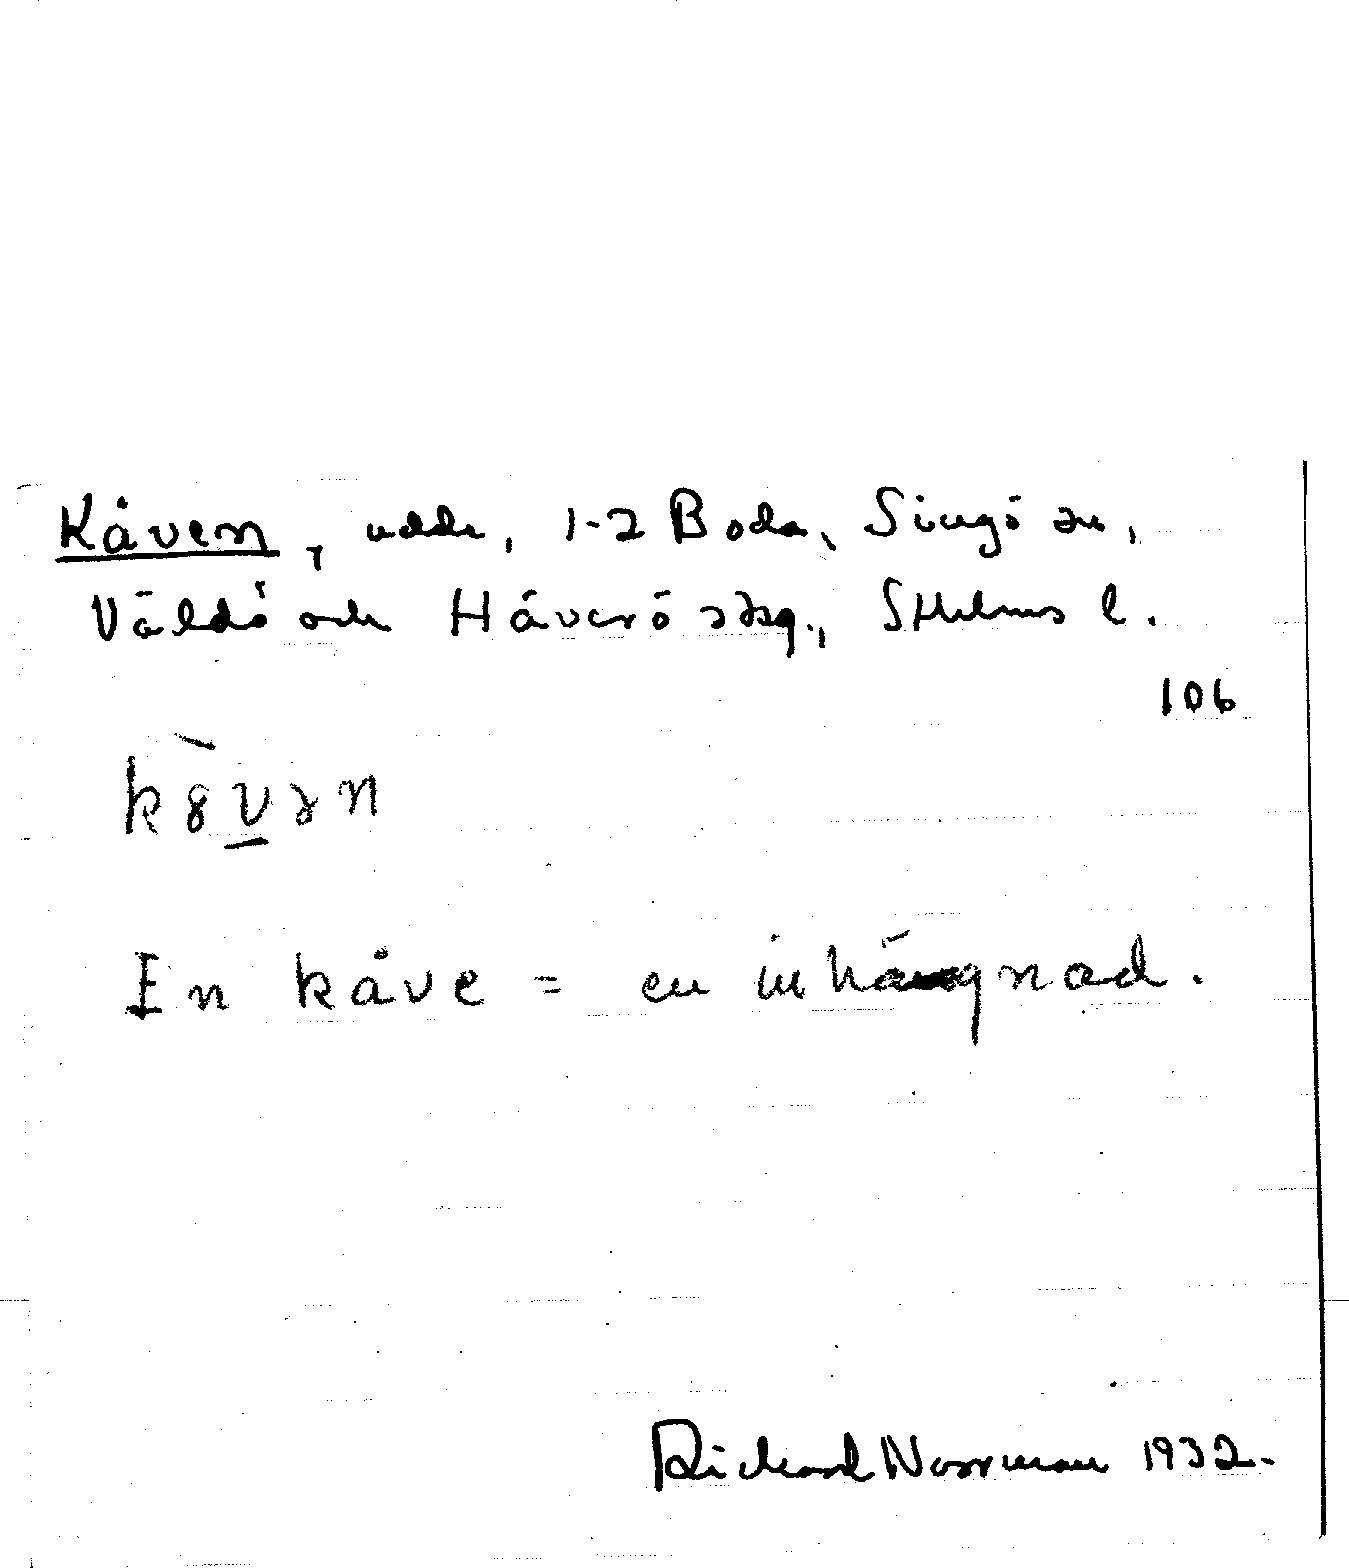 Kåven, udde, 1-2 Boda, Singö sn,
Väddö och Häverö skg., Sthlms l.
106
kȣ̀vən
En kåve = en inhägnad.
Richard Norrman 1932.